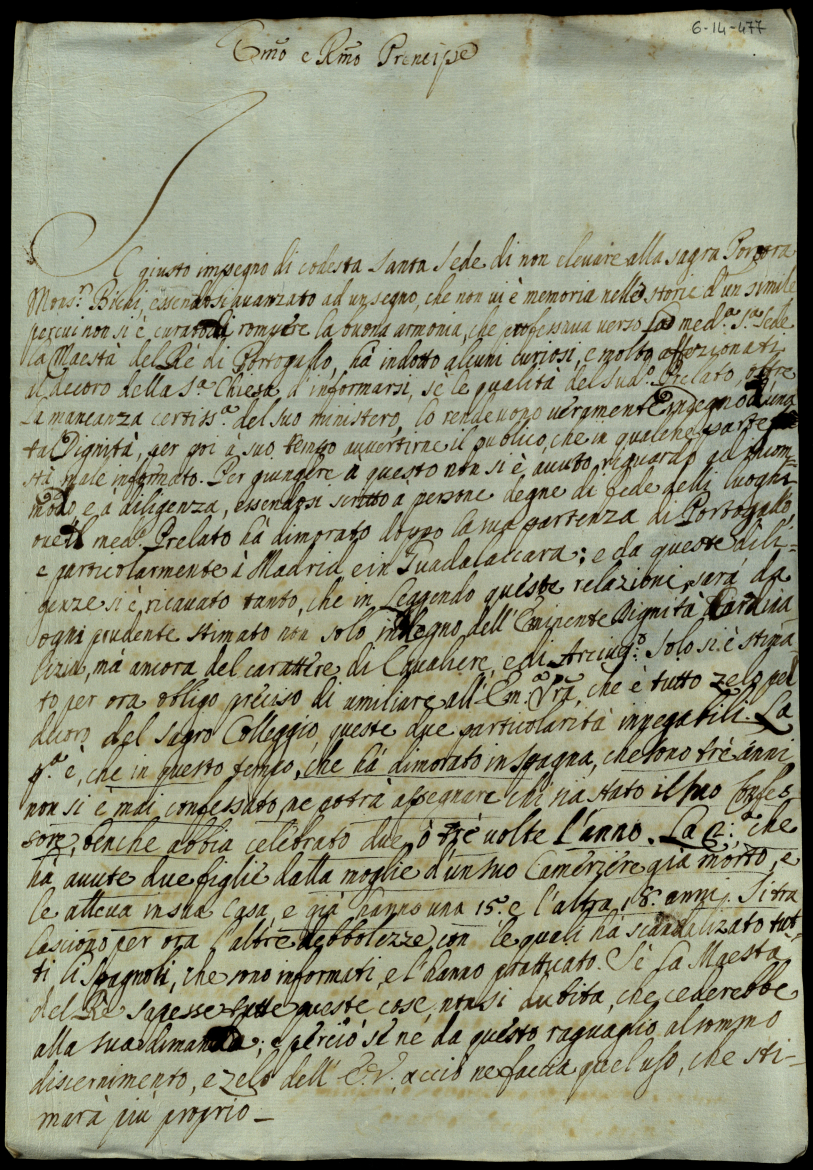 6-14-477
Emo e Rmo Prencipe
Il giusto impegno di codesta Santa Sede di non elevare alla sagra Porpora
Mons.r Bichi, essendosi avanzato ad un segno, che non vi è memoria nelle storie d'un simile
percui non si è curato di rompere la buona armonia, che professava verso la med.a S.a Sede
la Maestà del Re di Portogallo, hà indotto alcuni curiosi, e molto affezionati
al decoro della S.a Chiesa, d'informarsi, se le qualità del sud.o Prelato, oltre
la mancanza certiss.a del suo ministero, lo rendevono veramente indegno d'una
tal Dignità, per poi à suo tempo avvertirne il publico, che in qualche parte
stà male informato. Per giungere à questo non si è avuto riguardo ad incom-
modo e à diligenza, essendosi scritto à persone degne di fede nelli luoghi
ove il med.o Prelato hà dimorato doppo la sua partenza di Portogallo,
e particolarmente à Madrid e in Guadalaccara; e da queste dili-
genze si è ricavato tanto, che in leggendo queste relazioni, sarà da
ogni prudente stimato non solo indegno dell'Eminente Dignità Cardina
lizia, mà ancora del carattere di Cavaliere, e di Arciv.o Solo si è stima
to per ora obligo preciso di umiliare all'Em. Vra, che è tutto zelo pel
decoro del sagro Colleggio, queste due particolarità innegabili. La
p.a è, che in questo tempo, che hà dimorato in Spagna, che sono trè anni
non si è mai confessato, ne potrà assegnare chi sia stato il suo Confes
sore, benche abbia celebrato due, ò trè volte l'anno. La 2.a, che
hà avute due figlie dalla moglie d'un suo Cameriere già morto, e
le alleva in sua Casa, e già hanno una 15. e l'altra 18. anni. Si tra
lasciono per ora l'altre debbolezze, con le quali hà scandalizato tut-
ti li Spagnoli, che sono informati, e l'hanno pratticato. Se la Maestà
del Re sapesse tutte queste cose, non si dubita, che cederebbe
alla sua dimanda; e perciò se ne da questo raguaglio al sommo
discernimento, e zelo dell'E.V. acciò ne faccia quel uso, che sti-
marà più proprio_